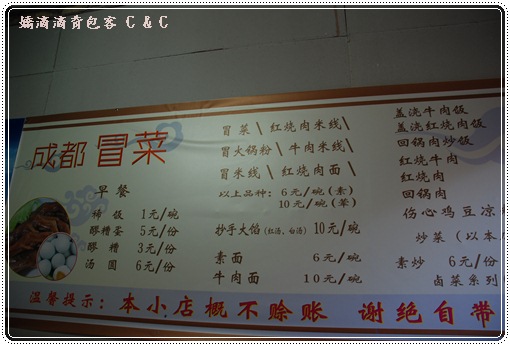 嬌滴滴背包客 C & C
成都 冒菜
早餐
稀饭 1元/碗
醪糟蛋 5元/份
醪糟 3元/份
汤圆 6元/份
冒菜\ 红烧肉米线\
冒火锅粉\ 牛肉米线\
冒米线\ 红烧肉面\
以上品种: 6元/碗(素)
10元/碗(荤)
抄手大馅(红汤、白汤) 10元/碗
素面 6元/碗
牛肉面 10元/碗
盖浇牛肉饭
盖浇红烧肉饭
回锅肉炒饭
红烧牛肉
红烧肉
回锅肉
伤心鸡豆凉
炒菜(以本
素炒 6元/份
卤菜系列
温馨提示: 本小店概不赊账 谢绝自带